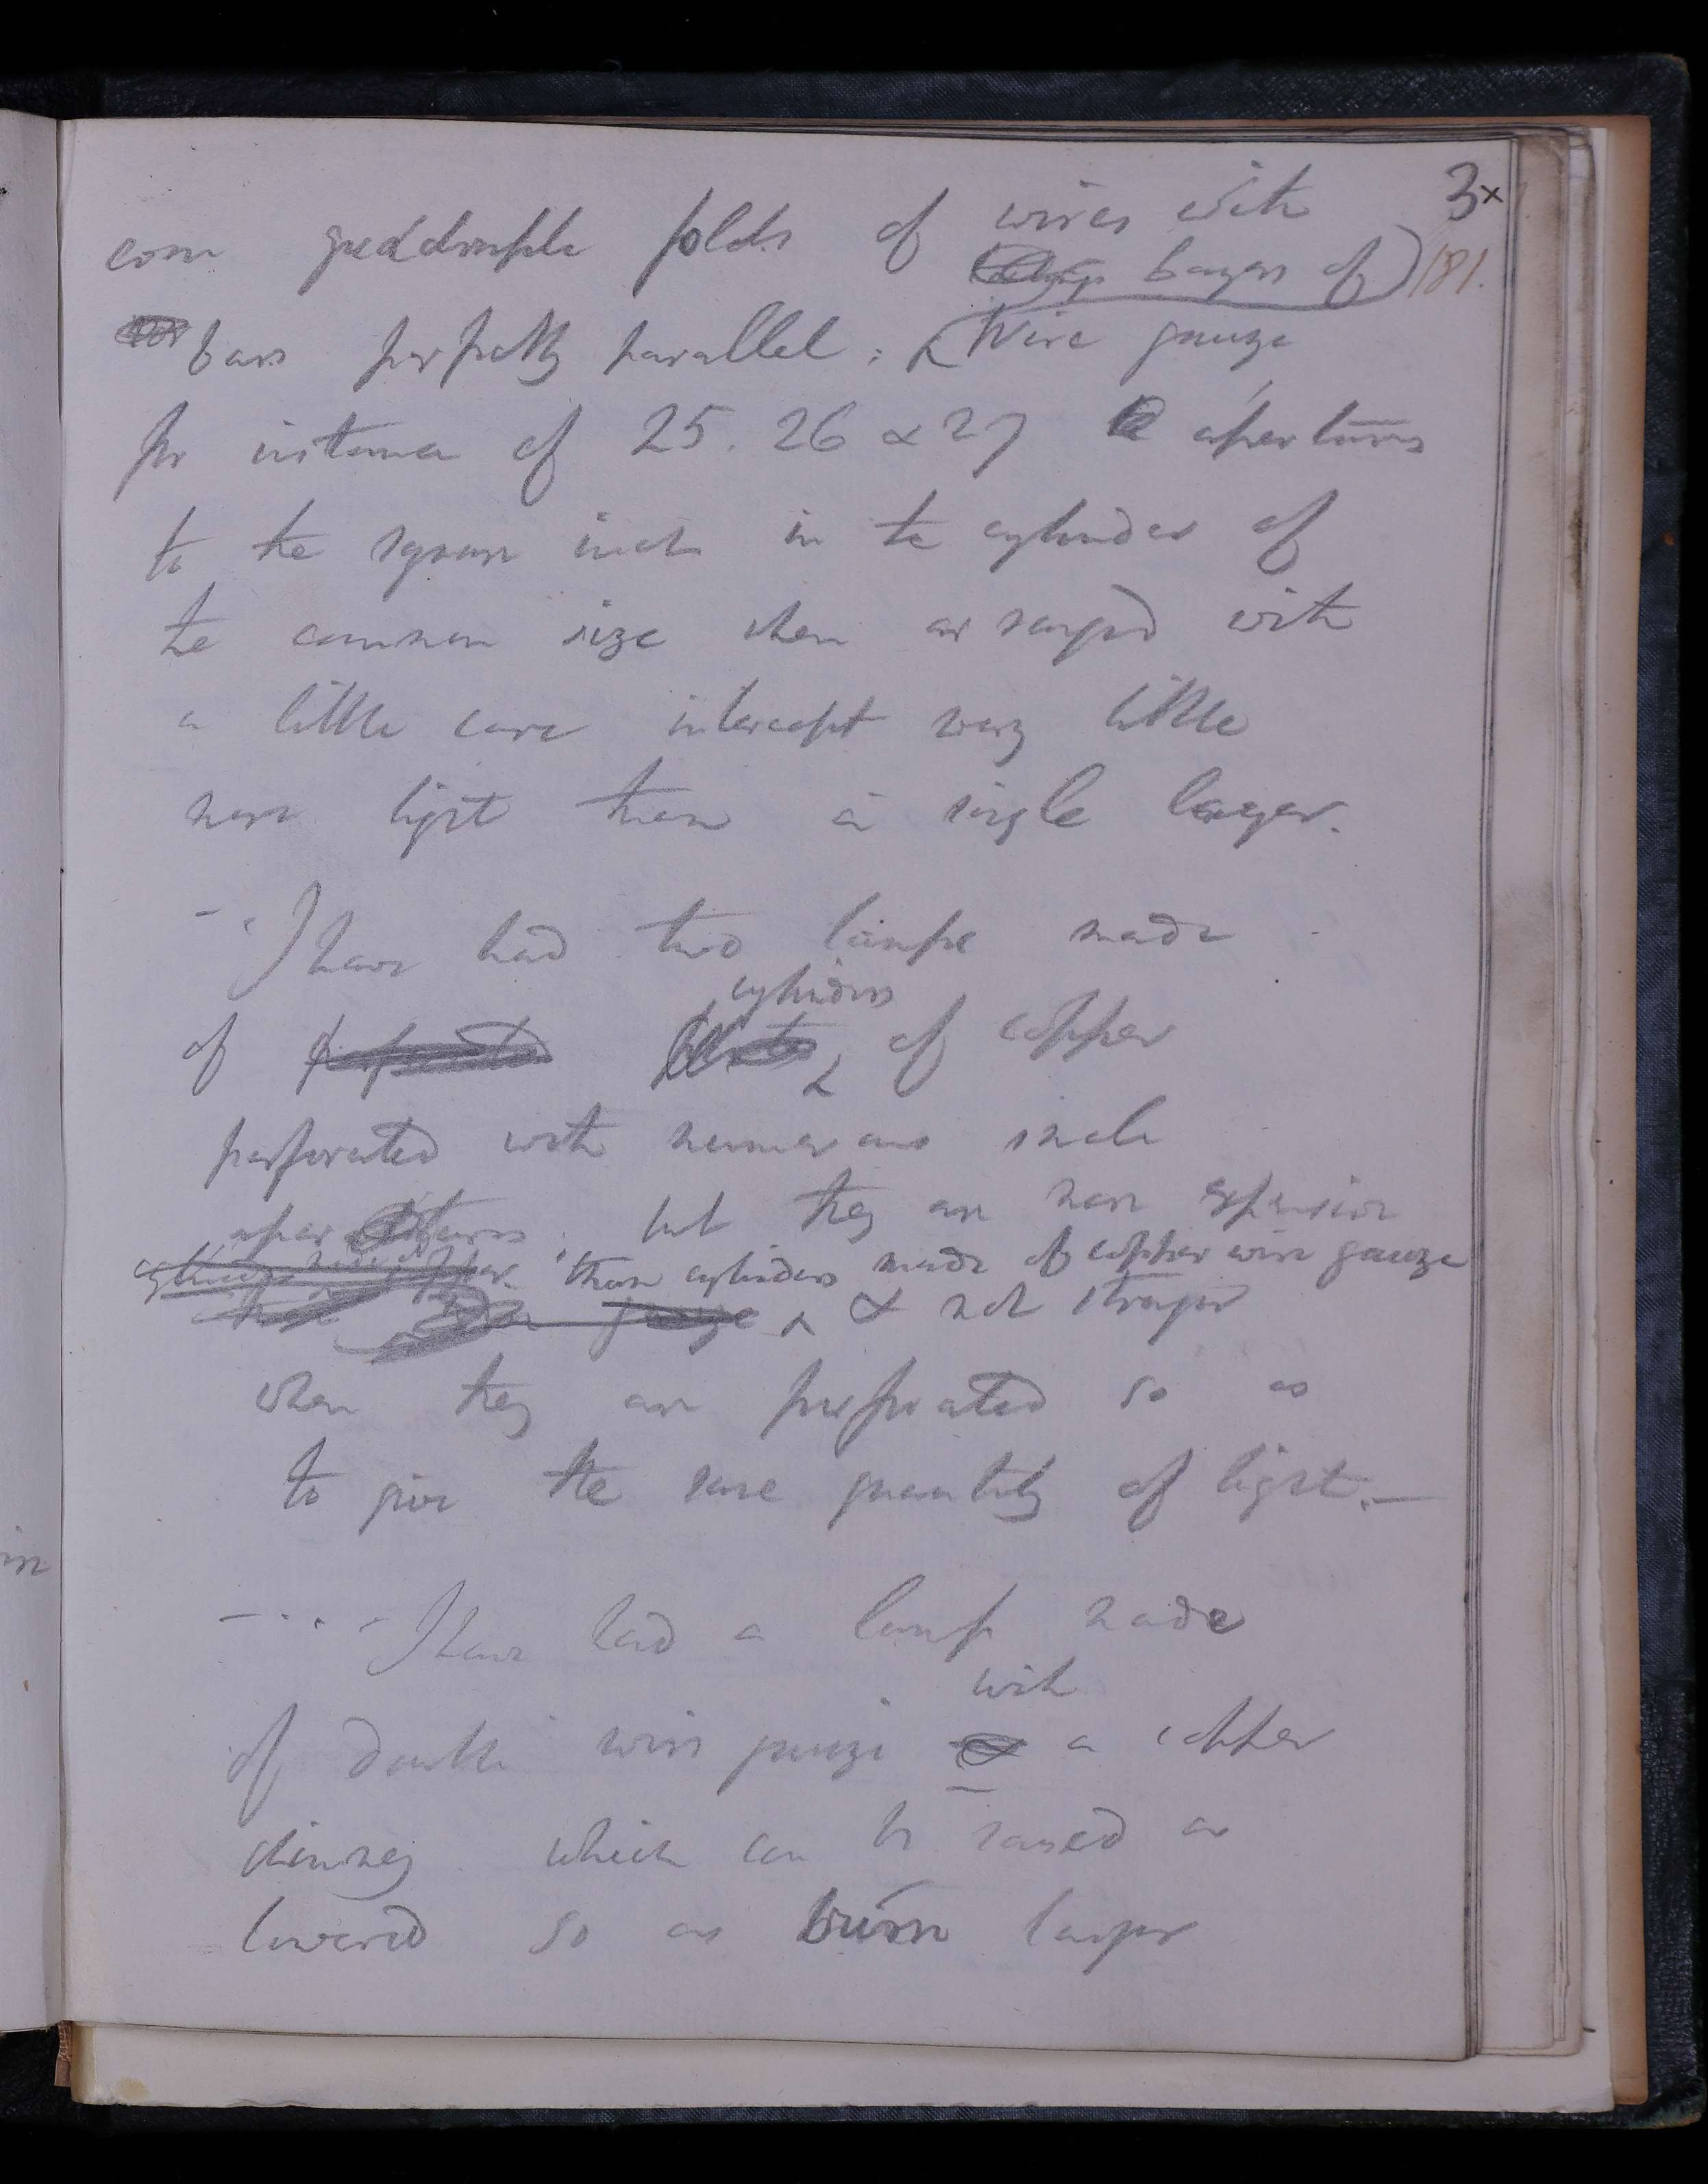 3x
181.
even quadruple folds of wires with
bars perfectly parallel; layers of Wire gauze
for instance of 25. 26 & 27 apertures
to the square inch in the cylinder of
the common size when arranged with
a little care intercept very little
more light than a single layer.
– I have had two lamps made
of perforated plates cylinders of copper
perforated with numerous small
apertures. but they are more expensive
than cylinders made of copper wire gauze
gauze & not stronger
when they are perforated so as
to give the same quantity of light. –
I have had a lamp made
of double wire gauze & with a copper
chimney which can be raised or
lowered so as burn larger